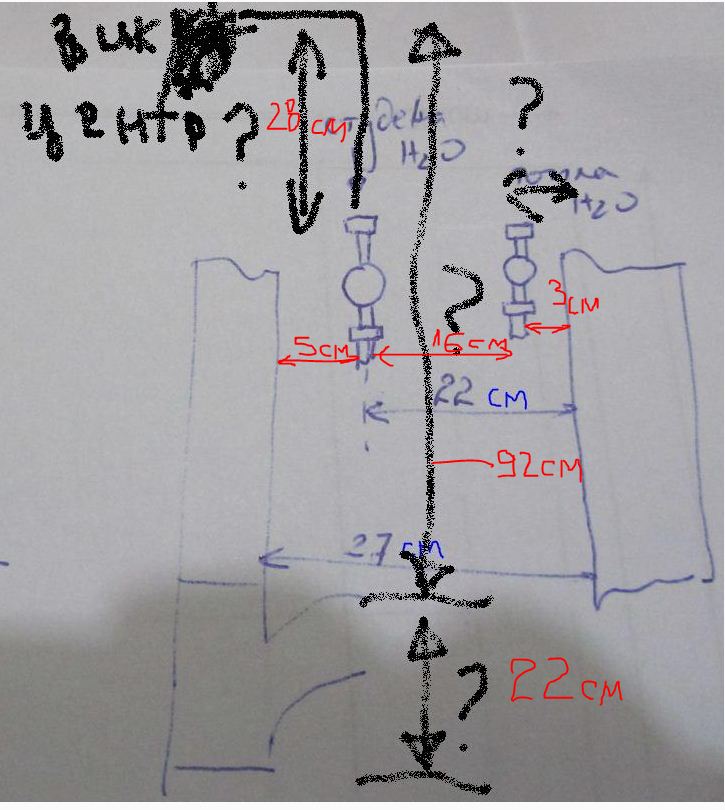 В ИК
ЦЕНТР ?
28 см
студена
H₂O
?
H₂O
3 см
?
5 см
16 см
22 см
92 см
27 см
? 22 см